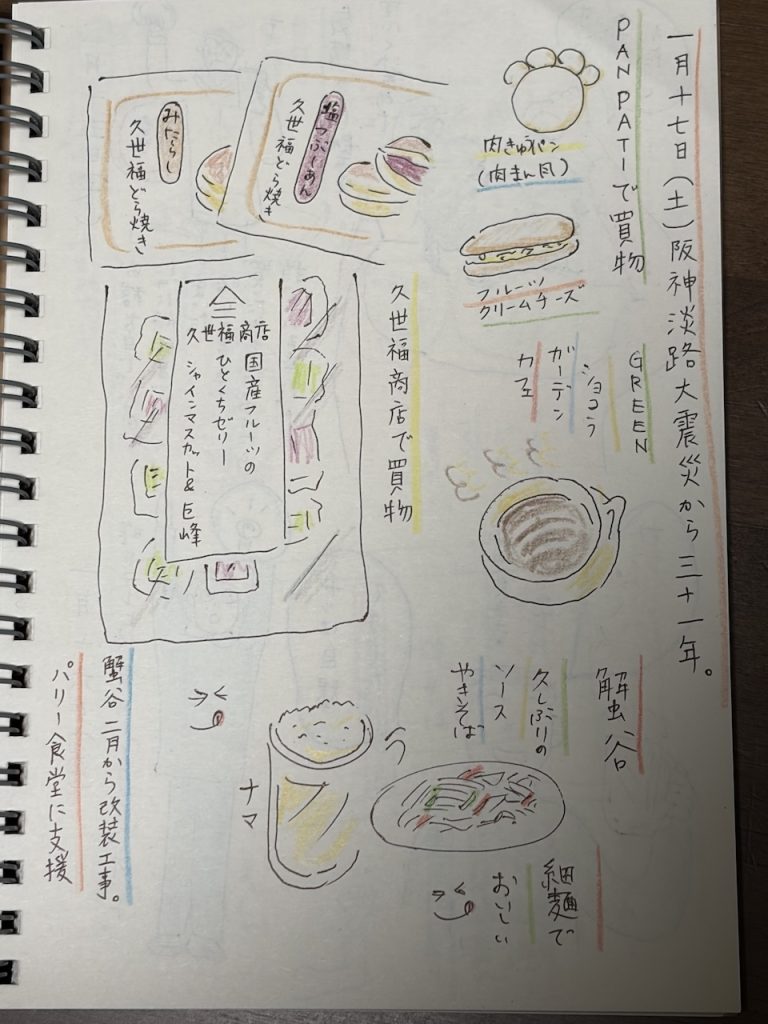 一月十七日(土)阪神淡路大震災から三十一年。
PAN PATIで買物
肉きゅうパン
(肉まん風)
フルーツ
クリームチーズ
GREEN
ショコラ
ガーデン
カフェ
久世福商店で買物
塩つぶしあん
久世福どら焼き
みたらし
久世福どら焼き
久世福商店
国産フルーツの
ひとくちゼリー
シャインマスカット&巨峰
蟹谷
久しぶりの
ソース
やきそば
細麺で
おいしい
ナマ
蟹谷 二月から改装工事。
パリー食堂に支援